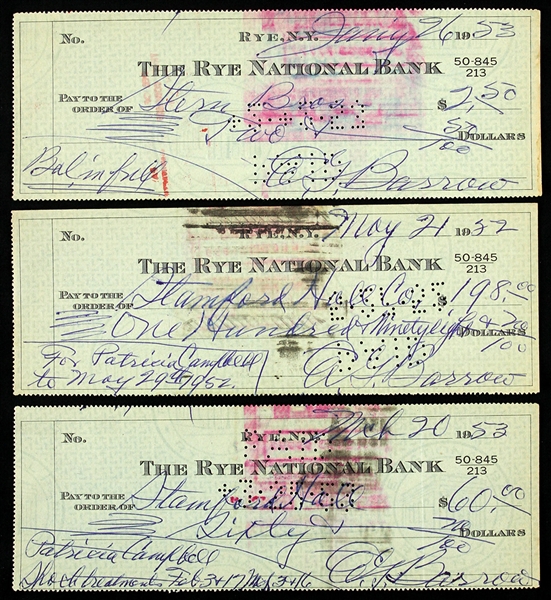 No.
RYE, N.Y. Jany 26 1953
THE RYE NATIONAL BANK 50-845
213
PAY TO THE
ORDER OF Stern Bros. $ 2.50
Two & 50/100 DOLLARS
Bal. in full
Barrow
No.
RYE, N.Y. May 21 1952
THE RYE NATIONAL BANK 50-845
213
PAY TO THE
ORDER OF Stamford Hall Co. $ 198.00
One Hundred & Ninety eight & no/100 DOLLARS
For Patricia Campbell
to May 29th 1952.
Barrow
No.
RYE, N.Y. Mch 20 1953
THE RYE NATIONAL BANK 50-845
213
PAY TO THE
ORDER OF Stamford Hall $ 60.00
Sixty & no/100 DOLLARS
Patricia Campbell
Shock treatments Feb 3 + 17 Mch 3 + 16
Barrow